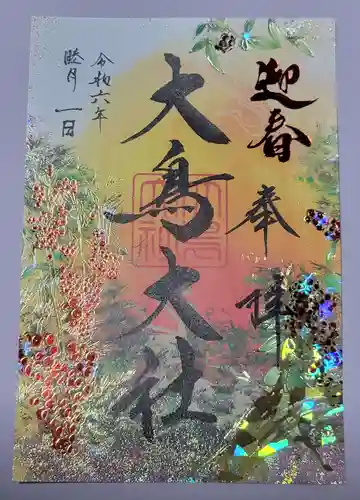 迎春
奉拝
大鳥大社
令和六年
睦月一日